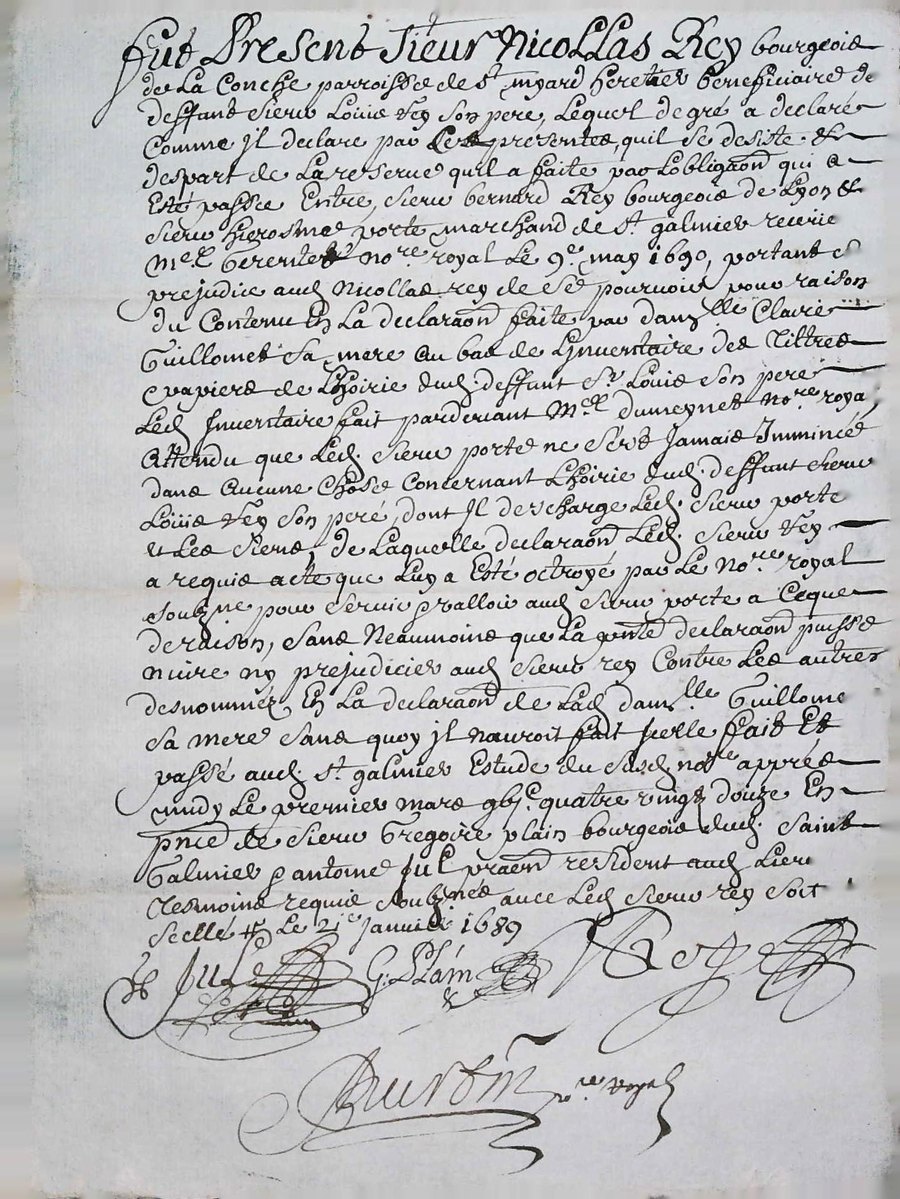 Fut Present Sieur Nicollas Rey bourgeois
de La Conche parroisse de st myard heretier beneficiaire de
deffunt Sieur Louis Rey Son pere, Lequel de gré a declaré
Comme Il declare par Les presentes quil se desiste &
despart de La reserve quil a faite par Lobligaon qui a
Esté passée Entre, Sieur bernard Rey bourgeois de Lyon &
Sieur hierosme porte marchand de st. galmier receüe
Me. nore royal Le 9e. may 1690, portant
prejudice aud Nicollas rey de Se pourvoir pour raison
du Contenu En La declaraon faite par damlle Claire
Guillomet Sa mere au bas de Linventaire des Tiltres
& papiers de Lhoirie dud. deffunt Sr. Louis Son pere
Led Inventaire fait pardevant Me dumeynet nore roya
Attendu que Led. Sieur porte ne Sest Jamais Immincé
dans Aucune Chose Concernant Lhoirie dud. deffunt Sieur
Louis Rey Son peré, dont Il descharge Led. Sieur porte
et Les Siens, de Laquelle declaraon Led. Sieur Rey
a requis acte que Luy a Esté octroyé par Le Nore royal
Soubzne pour Servir & valloir aud Sieur porte a Ceque
de raison, Sans Neaumoins que La pnte declaraon puisse
nuire ny prejudicier aud Sieur rey Contre Les autres
desnommez En La declaraon de Lad damlle Guillome
Sa mere Sans quoy il nauroit fait Icelle fait Et
passé aud. St. galmier Estude du Susd. nore apprés
midy Le premier mars gbjc. quatre vingz douze En
pnce de Sieur Gregoire plain bourgeois dud. Saint
Galmier & antoine Jul praēn resident aud Lieu
tesmoins requis Soubznes avec Led Sieur rey Soit
Scellé Le 21e Janvier 1689
Jul G. PLain Rey
nore royal